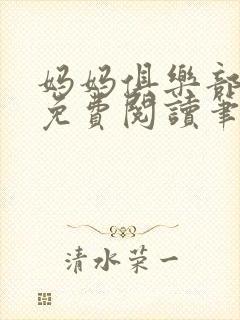 妈妈俱樂部
免費閱讀筆
清水荣一